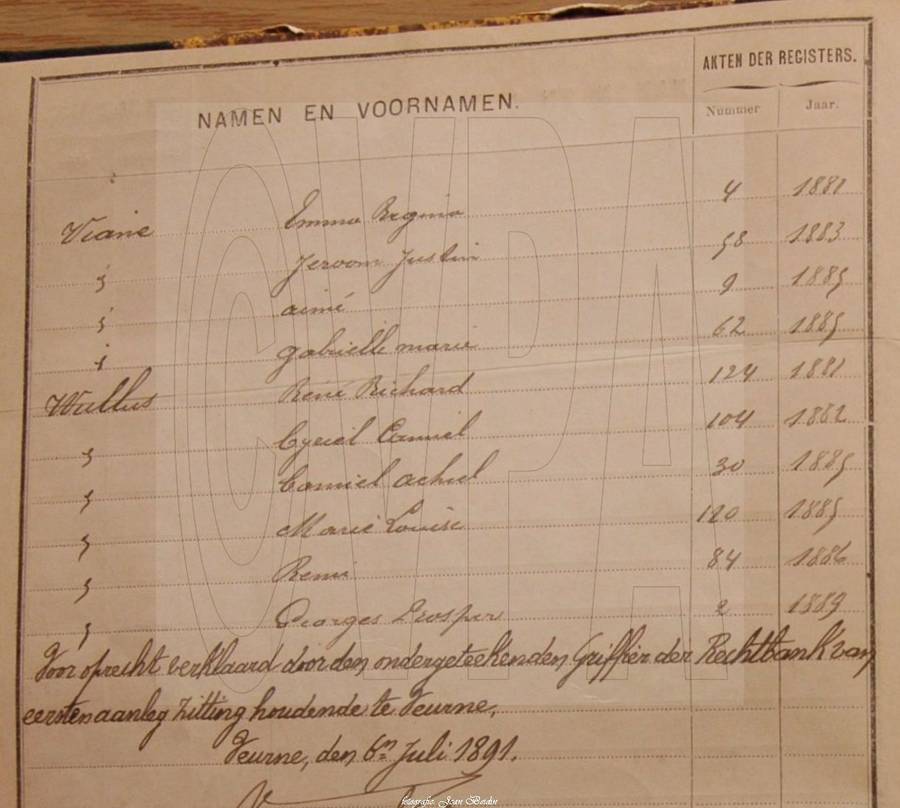 NAMEN EN VOORNAMEN.
AKTEN DER REGISTERS.
Nummer Jaar.
Viane Emma Regina 4 1881
" Jeroom Justin 58 1883
" aimé 9 1885
" gabrielle marie 62 1885
Wullus René Richard 124 1881
" Cyriel Camiel 104 1882
" Camiel achiel 30 1885
" Marie Louise 120 1885
" Remi 84 1886
" Georges Prosper 2 1889
Voor oprecht verklaard door den ondergeteekenden Griffier der Rechtbank van
eersten aanleg zitting houdende te Veurne,
Veurne, den 6en Juli 1891.
CVPA
fotografie Joan Boidin